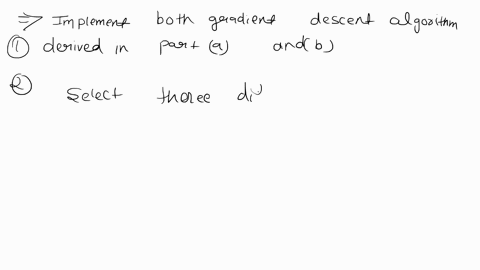 ⇒ Implement both gradient descent algorithm
① derived in part (a) and (b)
② Select thoree di